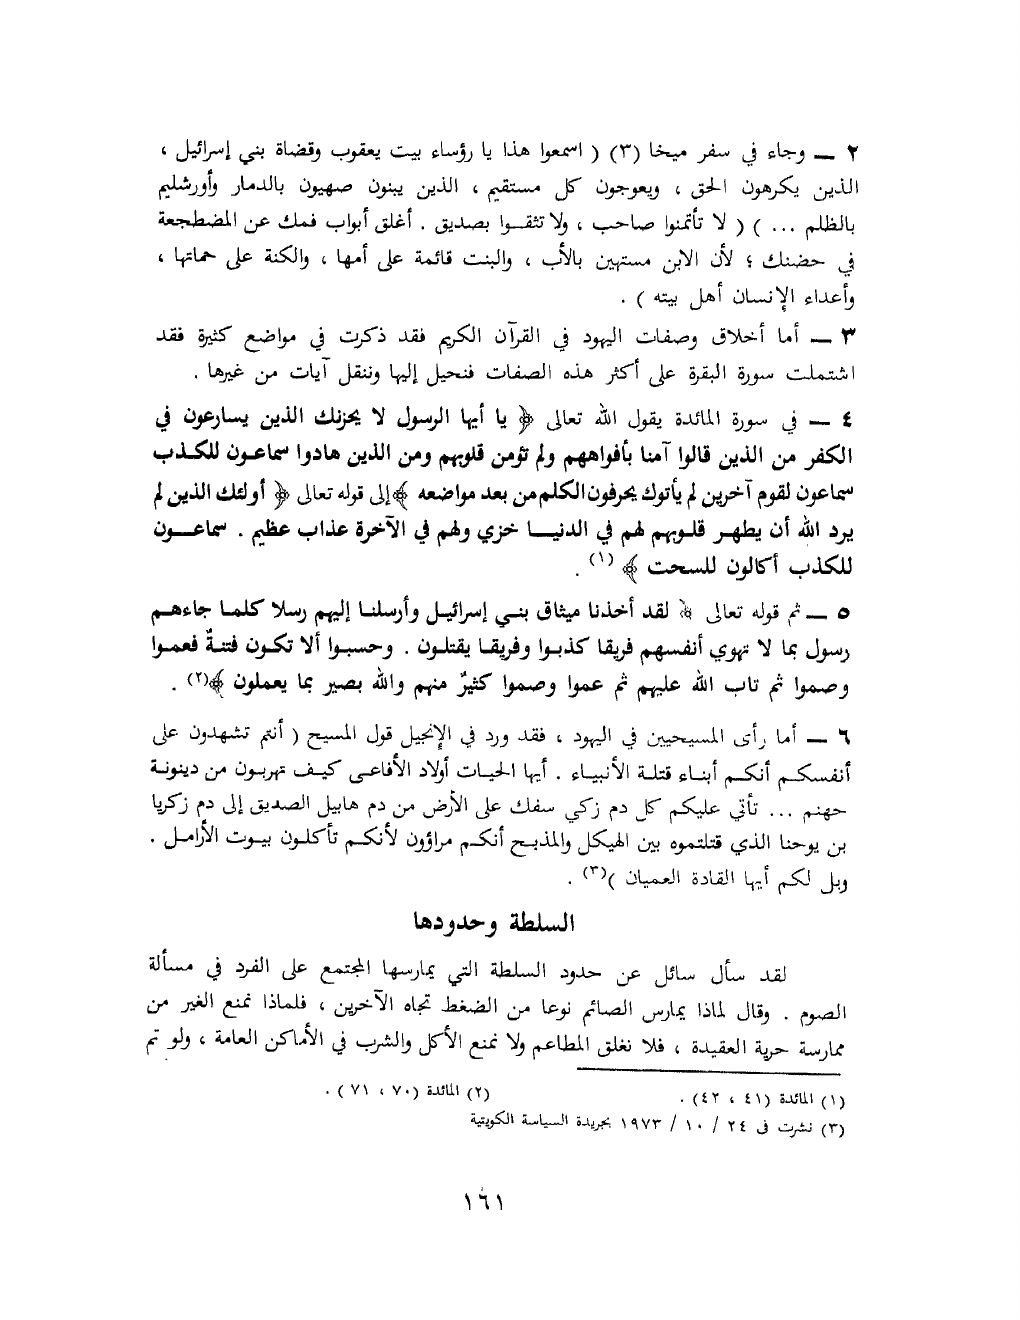 ٢ — وجاء في سفر ميخا (٣) ( اسمعوا هذا يا رؤساء بيت يعقوب وقضاة بني إسرائيل ،
الذين يكرهون الحق ، ويعوجون كل مستقيم ، الذين يبنون صهيون بالدمار وأورشليم
بالظلم ... ) ( لا تأتمنوا صاحب ، ولا تثقوا بصديق . أغلق أبواب فمك عن المضطجعة
في حضنك ؛ لأن الابن مستهين بالأب ، والبنت قائمة على أمها ، والكنة على حماتها ،
وأعداء الإنسان أهل بيته ) .
٣ — أما أخلاق وصفات اليهود في القرآن الكريم فقد ذكرت في مواضع كثيرة فقد
اشتملت سورة البقرة على أكثر هذه الصفات فنحيل إليها وننقل آيات من غيرها .
٤ — في سورة المائدة يقول الله تعالى ﴿ يا أيها الرسول لا يحزنك الذين يسارعون في
الكفر من الذين قالوا آمنا بأفواههم ولم تؤمن قلوبهم ومن الذين هادوا سماعون للكذب
سماعون لقوم آخرين لم يأتوك يحرفون الكلم من بعد مواضعه ﴾ إلى قوله تعالى ﴿ أولئك الذين لم
يرد الله أن يطهر قلوبهم لهم في الدنيا خزي ولهم في الآخرة عذاب عظيم . سماعون
للكذب أكالون للسحت ﴾ (١) .
٥ — ثم قوله تعالى ﴿ لقد أخذنا ميثاق بني إسرائيل وأرسلنا إليهم رسلا كلما جاءهم
رسول بما لا تهوي أنفسهم فريقا كذبوا وفريقا يقتلون . وحسبوا ألا تكون فتنةٌ فعموا
وصموا ثم تاب الله عليهم ثم عموا وصموا كثيرٌ منهم والله بصير بما يعملون ﴾(٢) .
٦ — أما رأى المسيحيين في اليهود ، فقد ورد في الإنجيل قول المسيح ( أنتم تشهدون على
أنفسكم أنكم أبناء قتلة الأنبياء . أيها الحيات أولاد الأفاعى كيف تهربون من دينونة
جهنم ... تأتي عليكم كل دم زكي سفك على الأرض من دم هابيل الصديق إلى دم زكريا
بن يوحنا الذي قتلتموه بين الهيكل والمذبح أنكم مراؤون لأنكم تأكلون بيوت الأرامل .
ويل لكم أيها القادة العميان )(٣) .
السلطة وحدودها
لقد سأل سائل عن حدود السلطة التي يمارسها المجتمع على الفرد في مسألة
الصوم . وقال لماذا يمارس الصائم نوعا من الضغط تجاه الآخرين ، فلماذا نمنع الغير من
ممارسة حرية العقيدة ، فلا نغلق المطاعم ولا نمنع الأكل والشرب في الأماكن العامة ، ولو تم
(١) المائدة (٤١ ، ٤٢) . (٢) المائدة (٧٠ ، ٧١ ) .
(٣) نشرت فى ٢٤ / ١٠ / ١٩٧٣ بجريدة السياسة الكويتية
١٦١